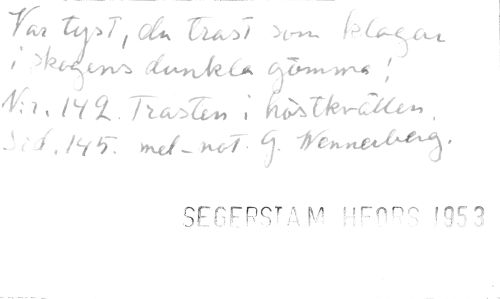 Var tyst, du trast som klagar
i skogens dunkla gömma!
N:r. 142. Trasten i höstkvällen.
Sid. 145. mel-not. G. Wennerberg.
SEGERSTAM HFORS 1953